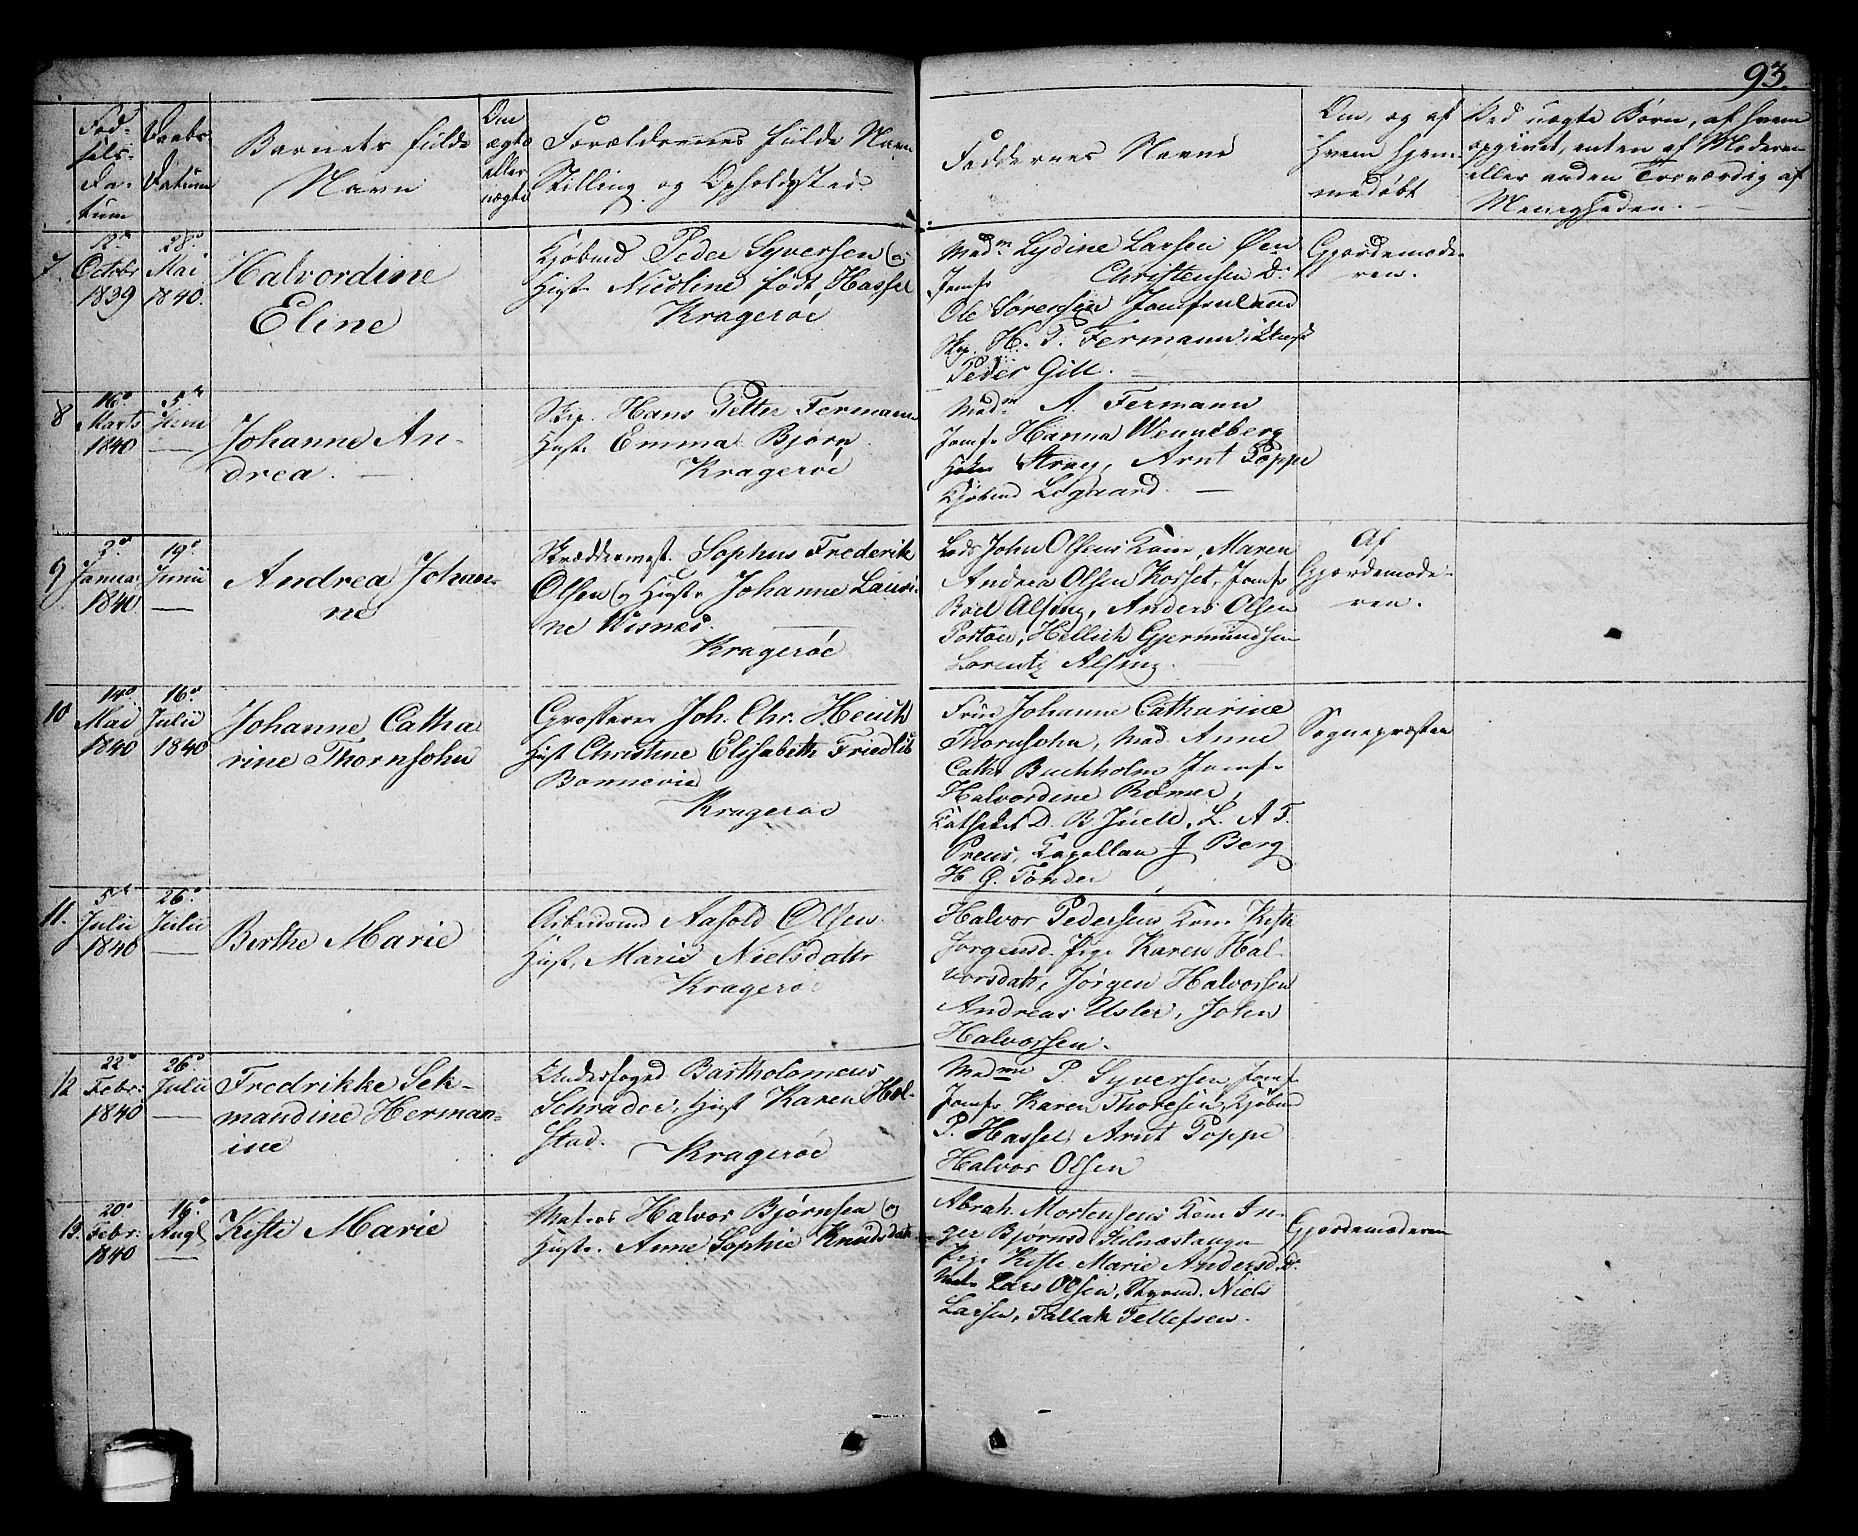 93.
Fød-
sels-
Da-
tum
Daabs
Datum
Barnets fulde
Navn
Om
ægte
eller
uægte
Forældrenes fulde Navn
Stilling og Opholdsted
Faddernes Navne
Om, og af
Hvem hjem-
medøbt
Ved uægte Børn, af hvem
opgivet, enten af Moderen
eller anden Troværdig af
Menigheden.
7.
12te
Octobr
1839
28de
Mai
1840.
Halvordine
Eline
Kjøbmd Peder Syversen og
Hust. Nicoline født Hassel
Kragerøe
Madm Lydine Larsen Øen-
Jomfr Christensen D:
Ole Sørensen Jomfruland
Skp. H. P. Fermann,
Peder Gill.
Gjordemode-
ren.
8
16de
Marts
1840
5te
Juni
Johanne An-
drea.
Skp. Hans Petter Fermann
Hust. Emma Bjørn
Kragerøe
Madm A. Fermann
Jomfr Hanna Wennberg
Stray, Arnt Poppe
Kjøbmd Legaard.
9
3de
Januar
1840
19de
Junii
Andrea Johan-
ne
Skræddermest. Sophus Frederik
Olsen og Hust. Johanne Lauri-
ne Wisnes.
Kragerøe
Lods John Olsens Kone, Maren
Andrea Olsen Kosset, Jomfr
Boel Alfing, Anders Olsen
Portøe, Hellich Gjermundsen
Lorentz Alfing.
Af
Gjordemode-
ren.
10
14de
Mai
1840
16de
Julii
1840
Johanne Catha
rine Thornsohn
Grosserer Joh. Chr. Heuch
Hust Christine Elisabeth Friedlib
Bonnevie
Kragerøe
Frue Johanne Catharine
Thornsohn, Mad. Anne
Cath. Buchholm Jomfr
Halvordine Rømer,
Katheket D. B. Juell, L. A. F.
Preus, Kapellan J Berg
H. G. Tønder
Sognepræsten
11.
5te
Julii
1840
26de
Julii
Berthe Marie
Arbeidsmd Aasold Olsen
Hust, Marie Nielsdattr
Kragerø
Halvor Pedersens Kone Kisti
Jørgensd. Pige Karen Hal-
vorsdatr, Jørgen Halvorsen
Andreas Usler, John
Halvorsen.
12
22de
Febr:
1840
26de
Julii
Fredrikke Sek-
mandine Herman-
ine
Underfoged Bartholomeus
Schrader, Hust Karen Hol-
stad.
Kragerøe
Madme P. Syversen
Jomfr Karen Thoresen, Kjøbmd
P. Hassel, Arnt Poppe
Halvor Olsen
13.
20de
Febr:
1840
16de
Augt
Kisti Marie
Matros Halvor Bjørnsen og
Hust. Anne Sophie Knudsdatr
Abrah. Mortensens Kone In-
ger Bjørnsd Stilnæstangen
Pige Kisti Marie Andersdtr.
Mat. Lars Olsen, Niels
Larsen, Tallak Tellefsen.
Gjordemoderen